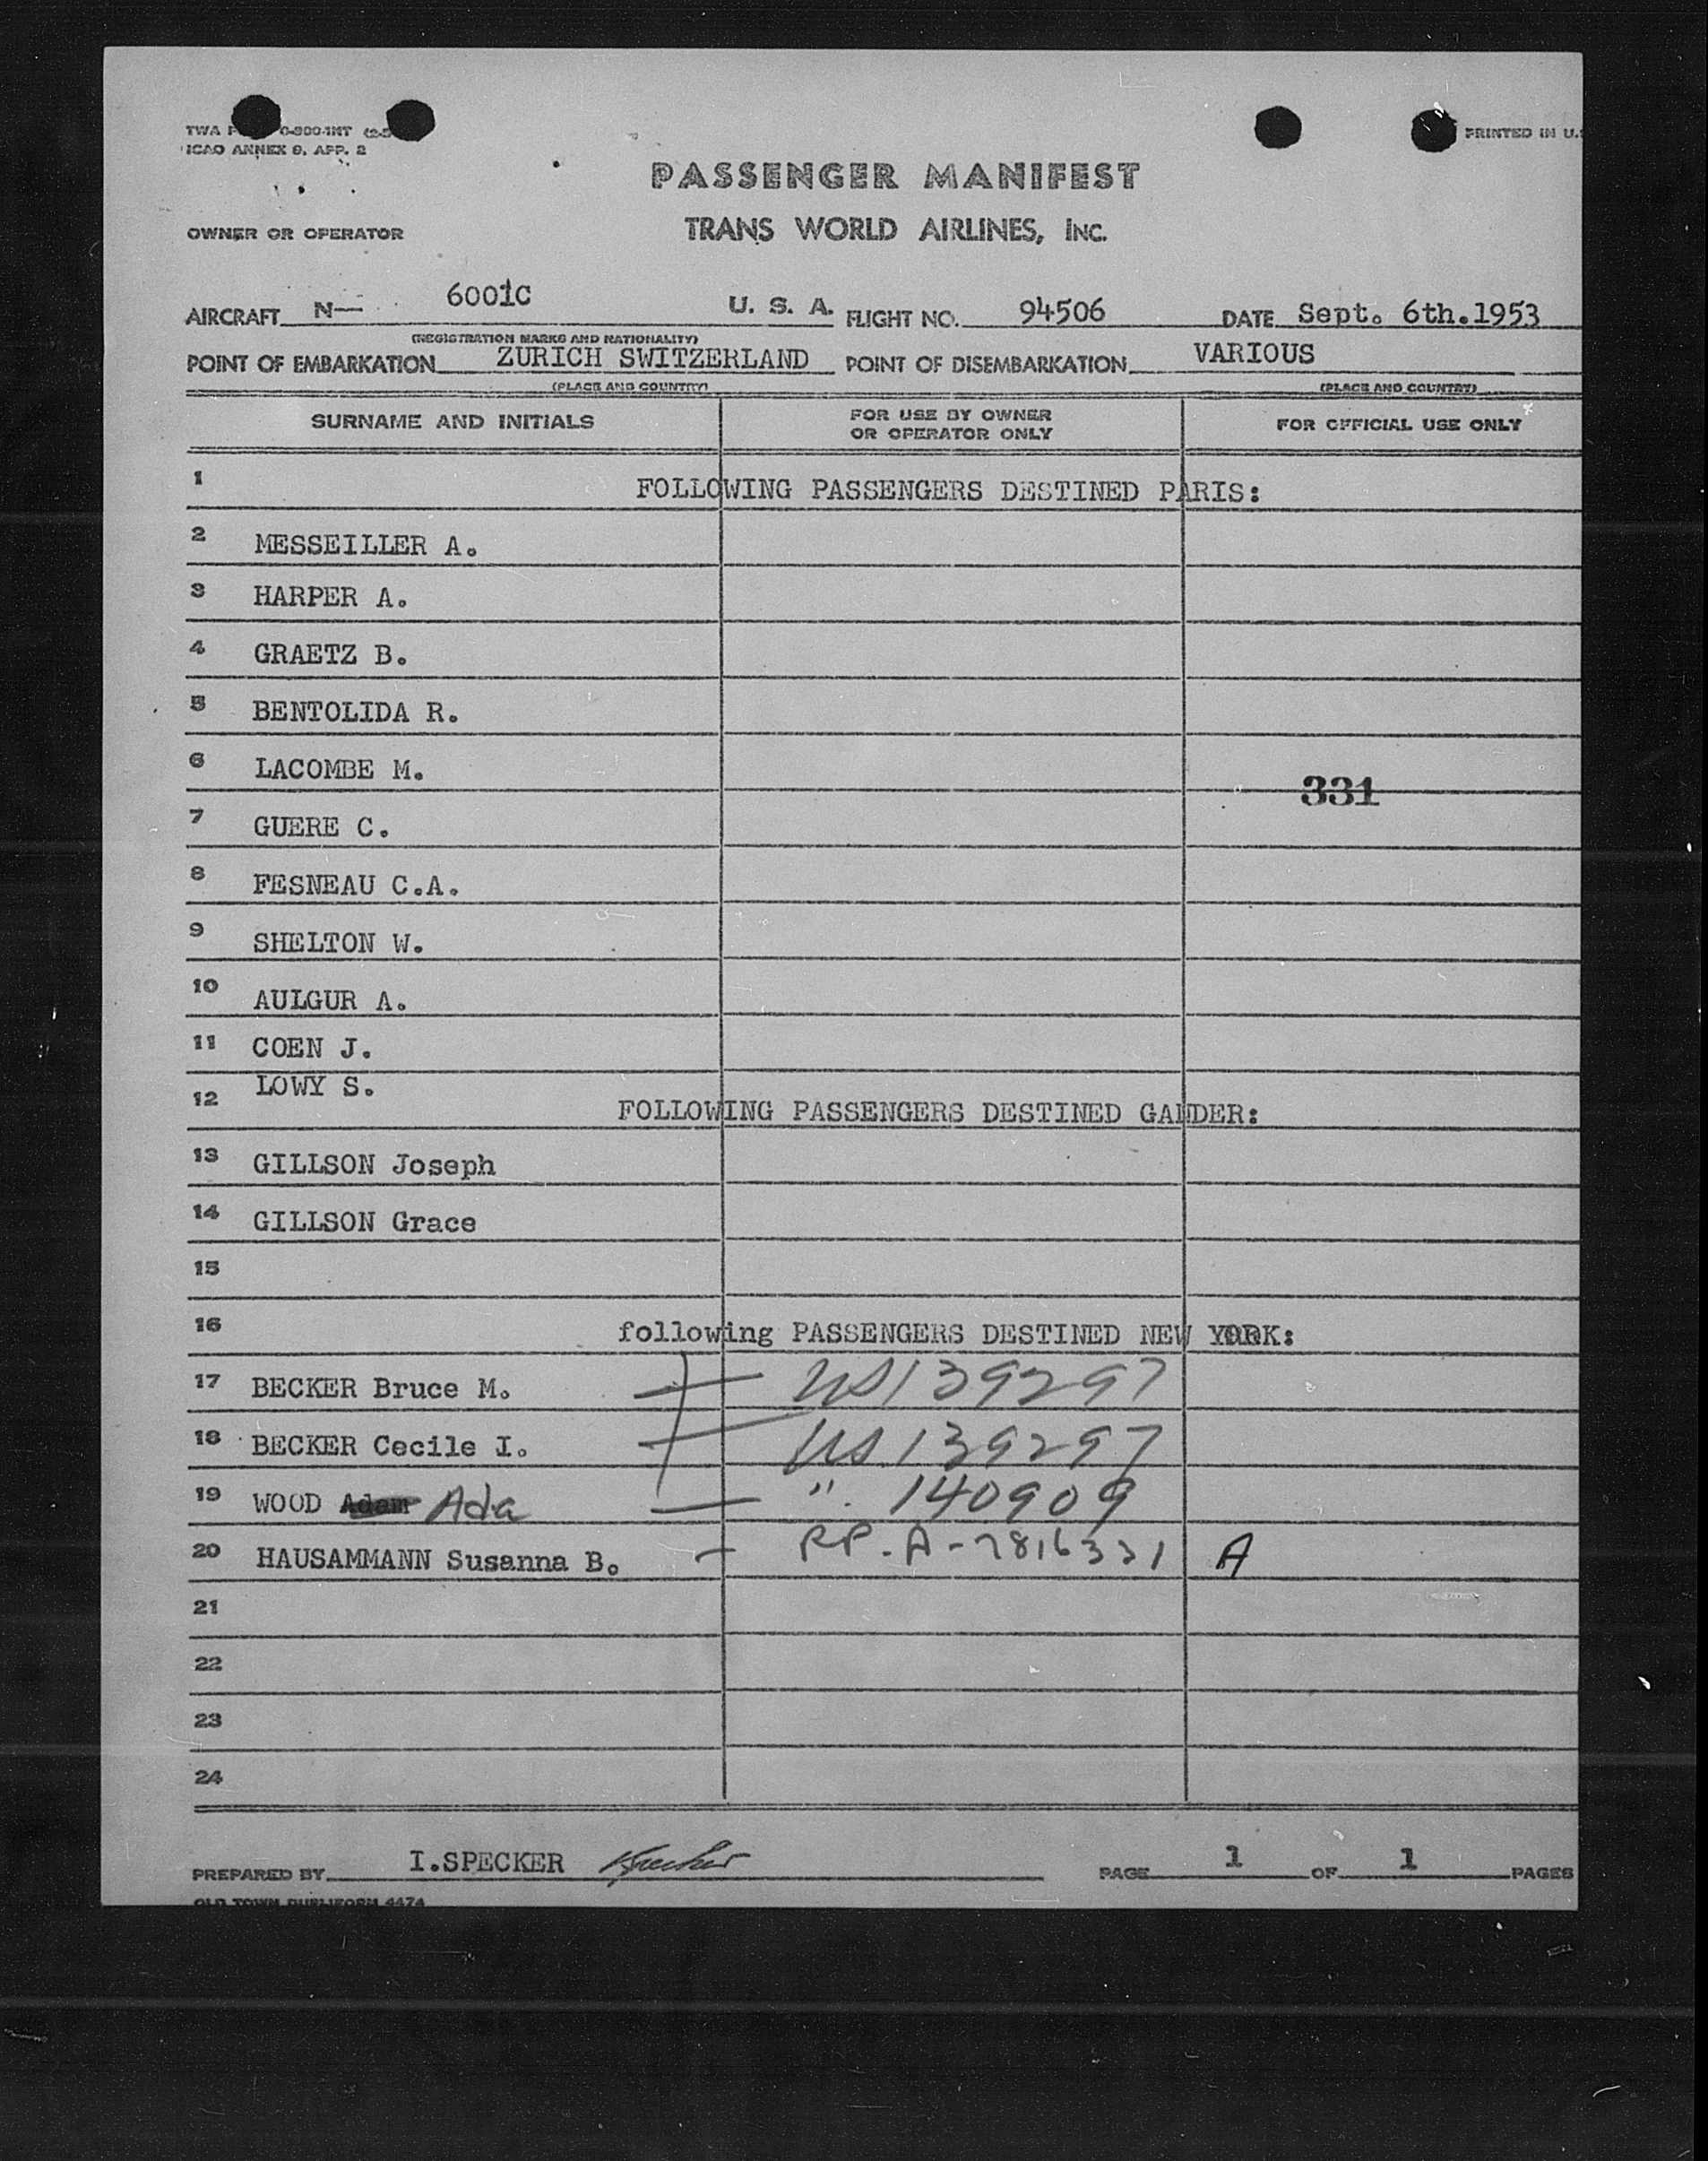 TWA F 0-900-INT (2-5
ICAO ANNEX 9, APP. 2
PRINTED IN U.S
PASSENGER MANIFEST
OWNER OR OPERATOR TRANS WORLD AIRLINES, INC.
AIRCRAFT N— 6001C U. S. A. FLIGHT NO. 94506 DATE Sept. 6th.1953
(REGISTRATION MARKS AND NATIONALITY)
POINT OF EMBARKATION ZURICH SWITZERLAND POINT OF DISEMBARKATION VARIOUS
(PLACE AND COUNTRY) (PLACE AND COUNTRY)
SURNAME AND INITIALS FOR USE BY OWNER OR OPERATOR ONLY FOR OFFICIAL USE ONLY
1 FOLLOWING PASSENGERS DESTINED PARIS:
2 MESSEILLER A.
3 HARPER A.
4 GRAETZ B.
5 BENTOLIDA R.
6 LACOMBE M.
331
7 GUERE C.
8 FESNEAU C.A.
9 SHELTON W.
10 AULGUR A.
11 COEN J.
LOWY S.
12 FOLLOWING PASSENGERS DESTINED GANDER:
13 GILLSON Joseph
14 GILLSON Grace
15
16 following PASSENGERS DESTINED NEW YORK:
17 BECKER Bruce M. — US139297
18 BECKER Cecile I. — US.139297
19 WOOD Adam Ada — ". 140909
20 HAUSAMMANN Susanna B. — RP-A-7816331 A
21
22
23
24
PREPARED BY I.SPECKER Specker PAGE 1 OF 1 PAGES
OLD TOWN DUPLIFORM 4474